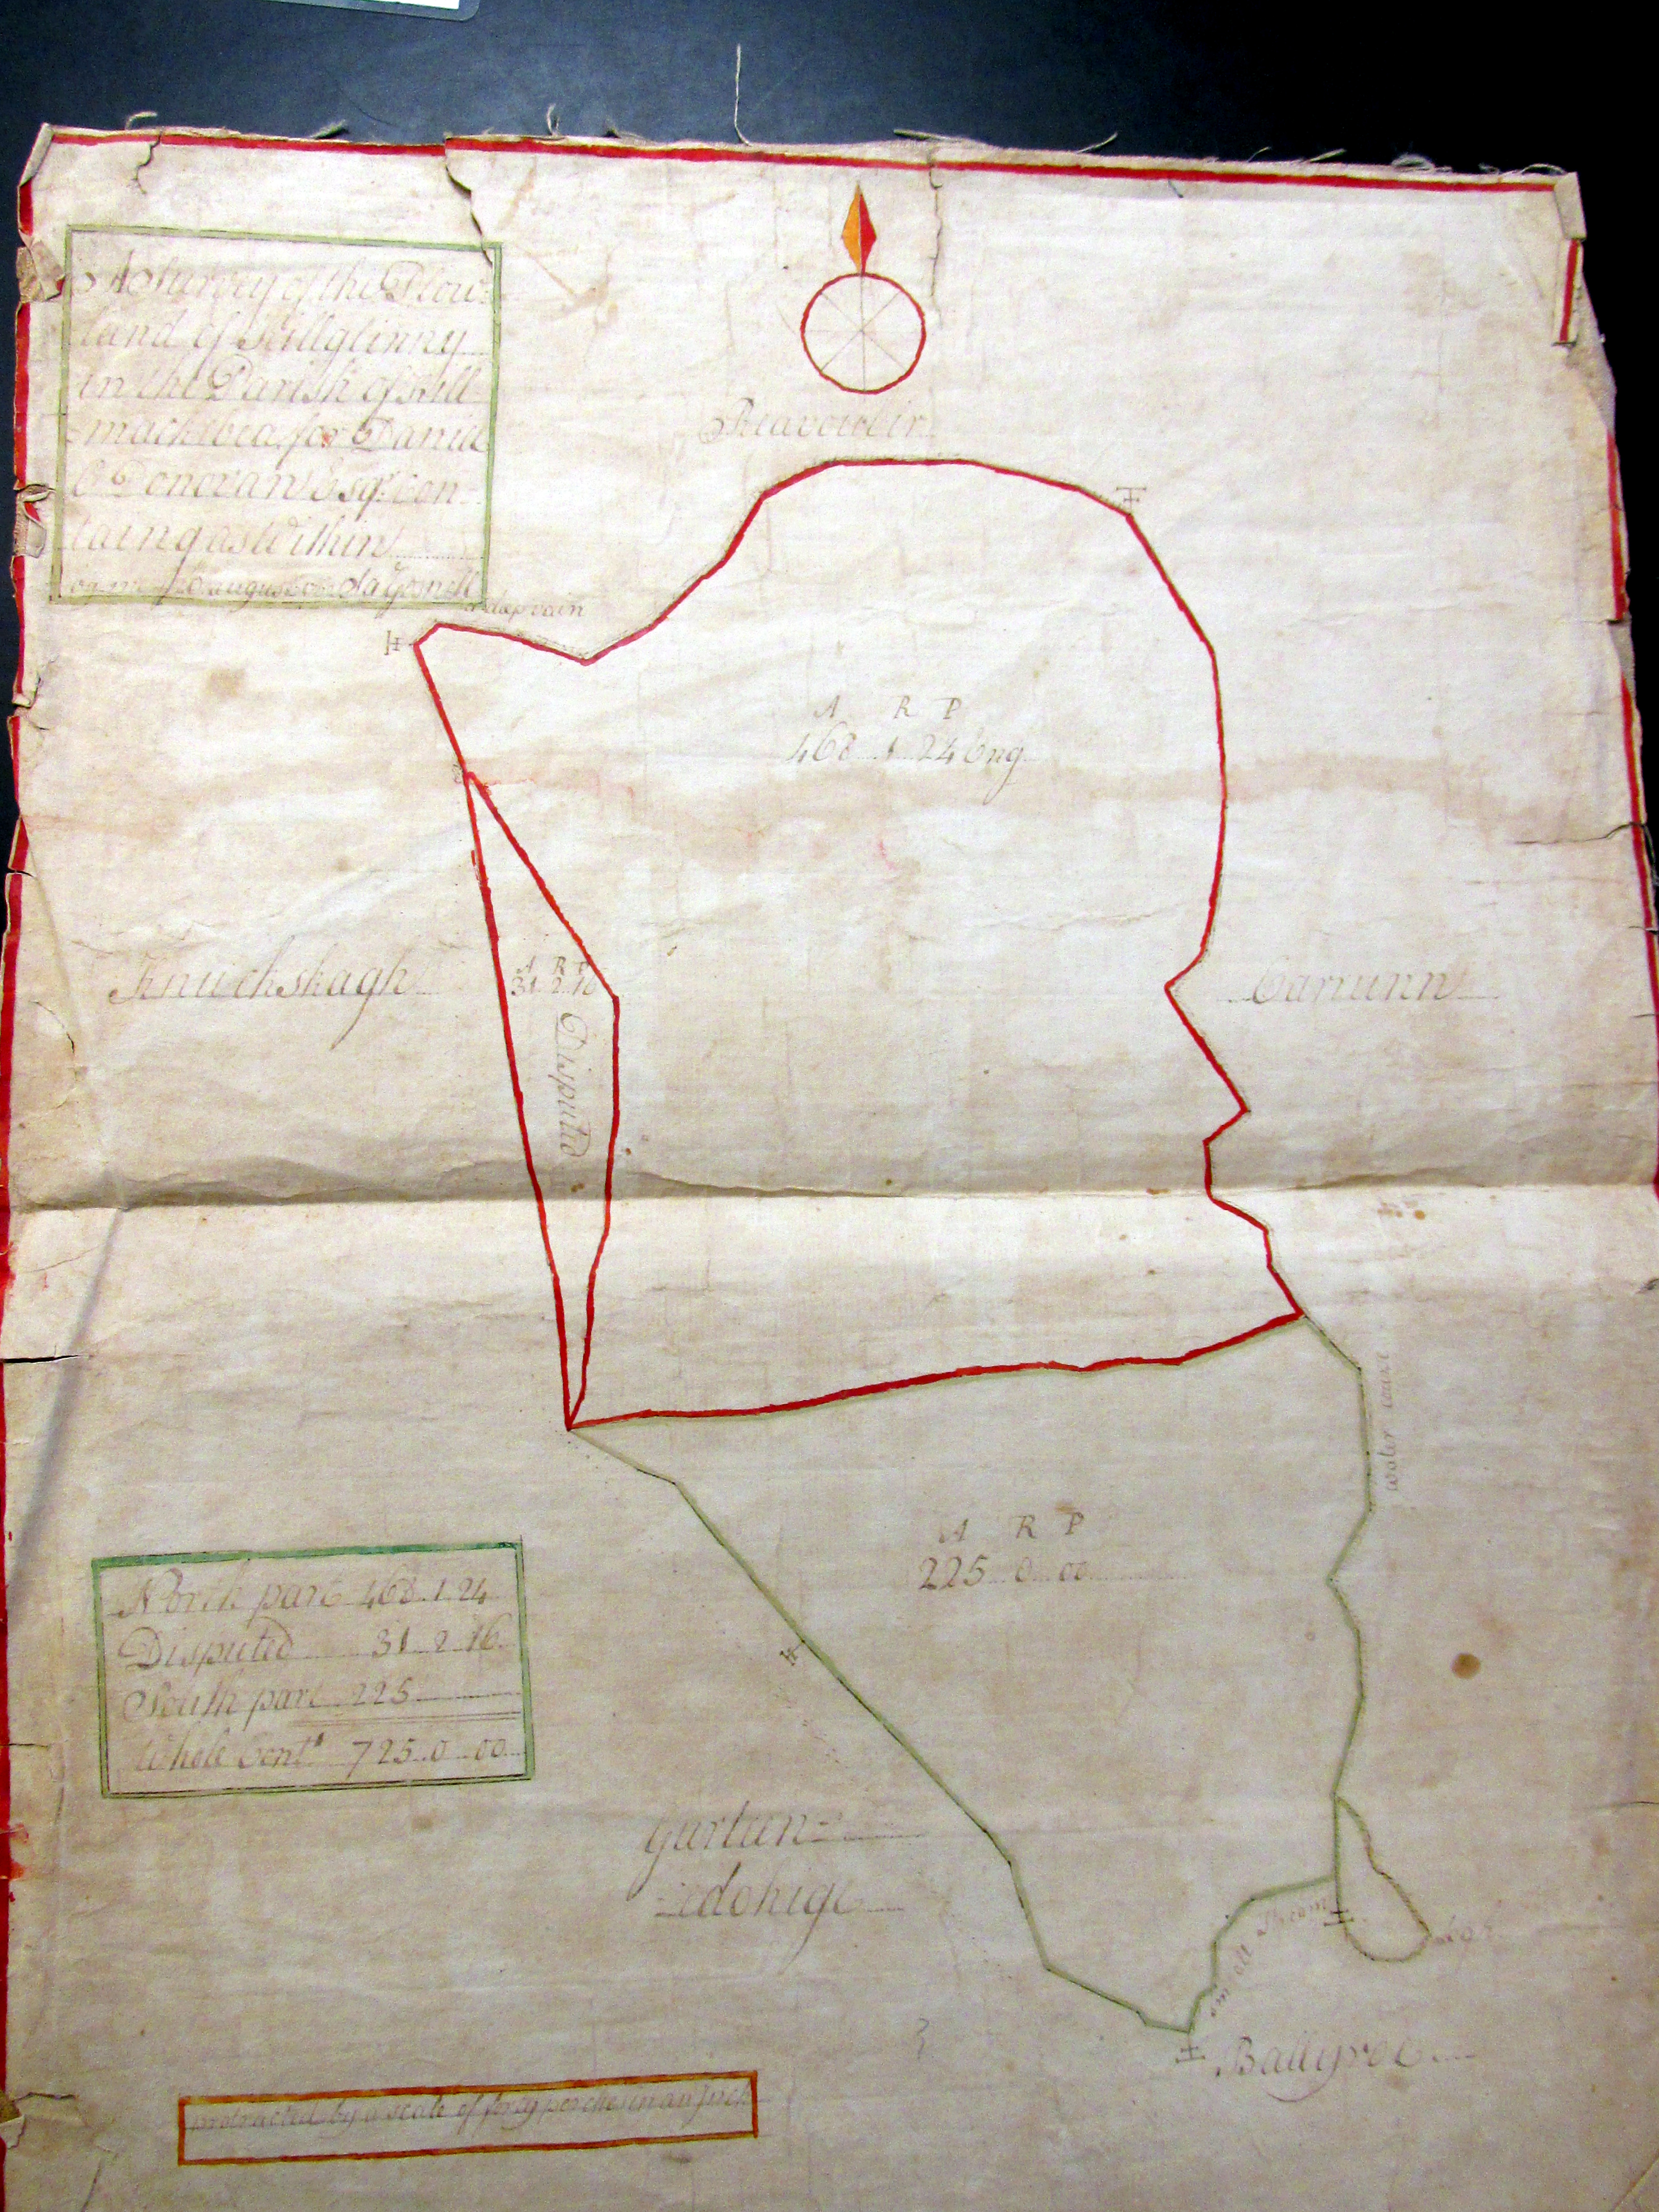 A Survey of the Plow=
land of Killglinny
in the Parish of Kill
=mackebea for Daniell
O Donovan Esqr. Con-
taing as Within
August
Reavouleir
a deep vain
A R P
468 1 24 Eng
Knuckskagh
A R P
31 2 16
Disputed
Carrunn
water
A R P
225 0 00
North part 468 1 24
Disputed 31 2 16
South part 225
Whole Cont 725 0 00
Gurteen=
=edohige
small Stream
Bog
Ballyroe
protracted by a scale of forty perches in an Inch